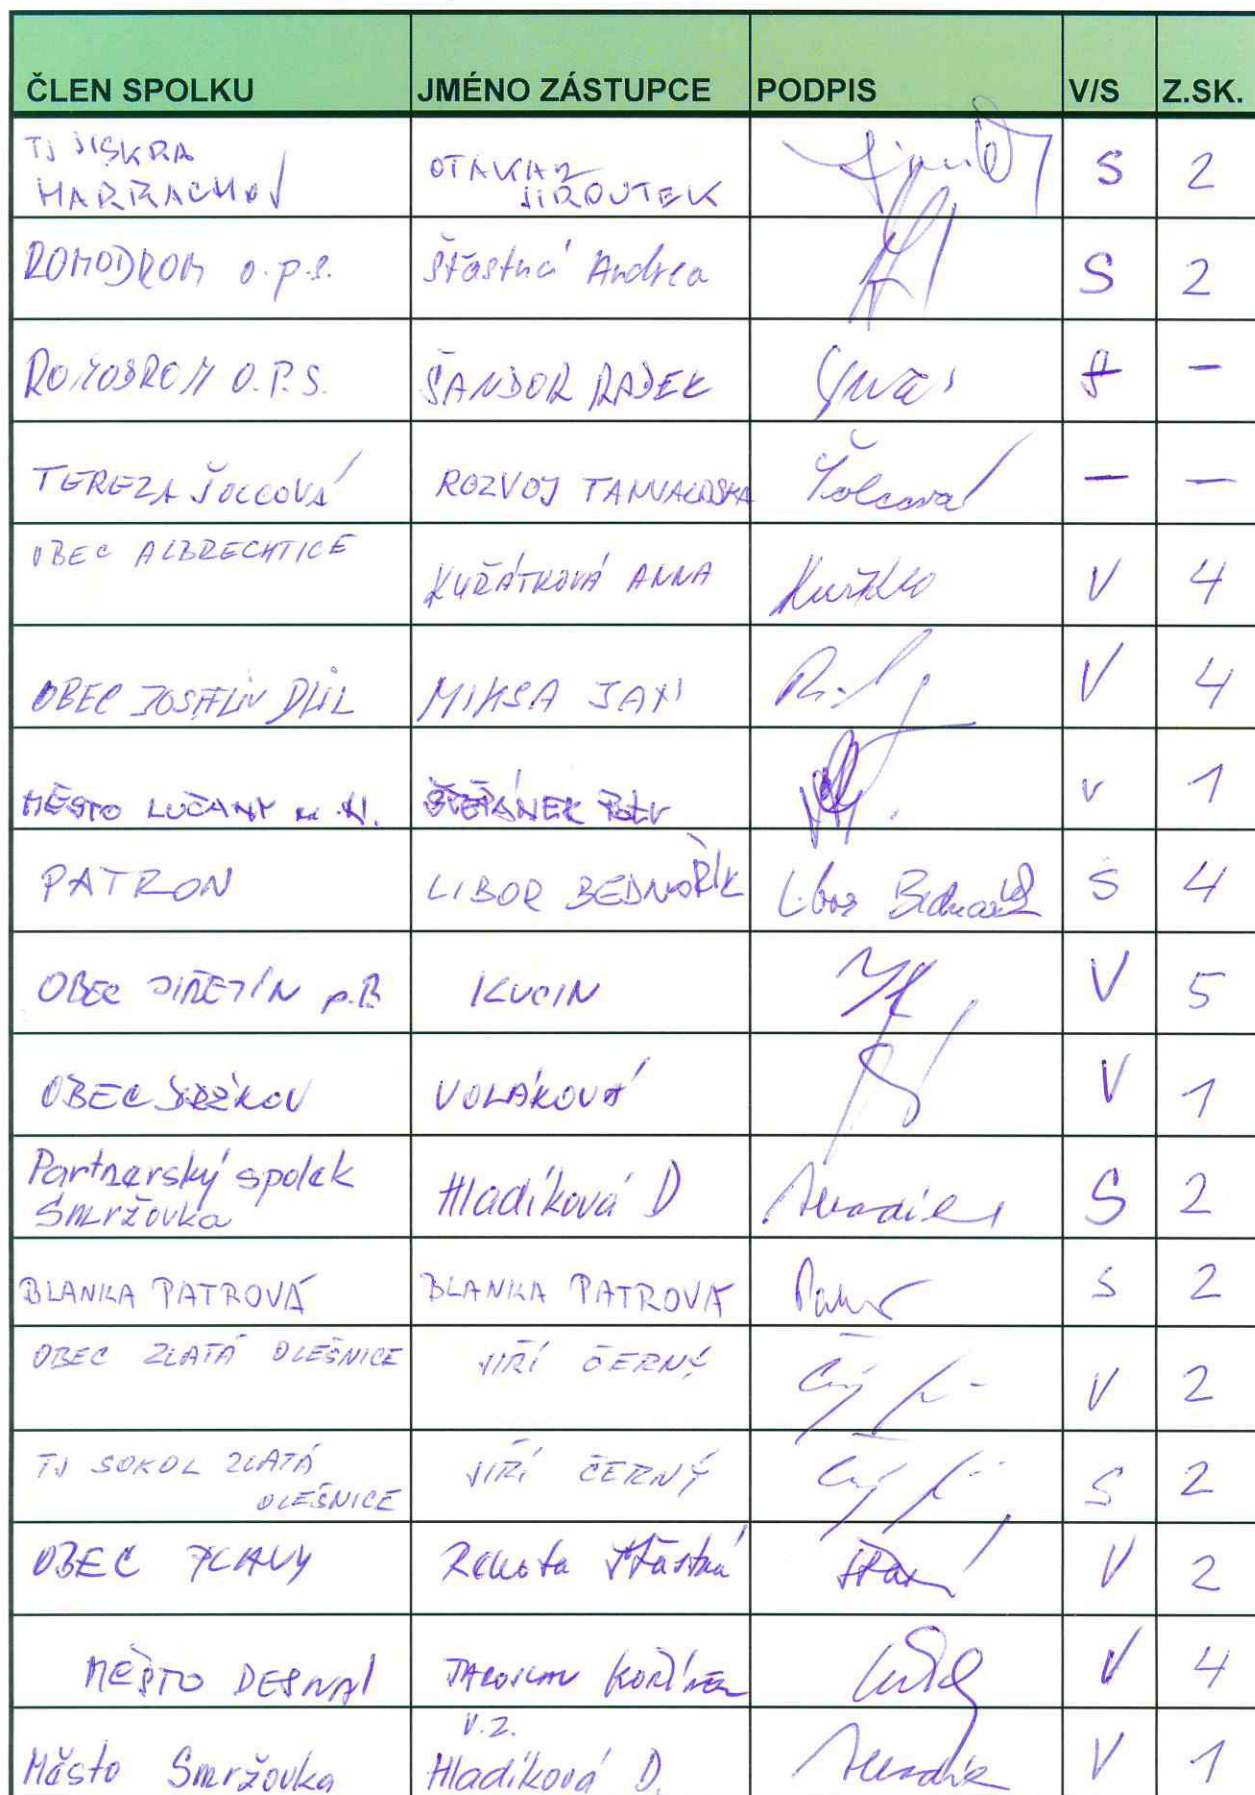 ČLEN SPOLKU JMÉNO ZÁSTUPCE PODPIS V/S Z.SK.
TJ JISKRA
HARRACHOV OTAKAR
JIROUTEK S 2
ROMODROM o.p.s. Šťastná Andrea S 2
ROMODROM O.P.S. ŠANDOR RADEK –
TEREZA ŠOLCOVÁ ROZVOJ TANVALDSKA Šolcová – –
OBEC ALBRECHTICE KUŘÁTKOVÁ ANNA V 4
OBEC JOSEFŮV DŮL MIKSA JAN V 4
MĚSTO LUČANY n. N. ŠTĚPÁNEK V 1
PATRON LIBOR BEDNAŘÍK Libor Bednařík S 4
OBEC JIŘETÍN p.B KUCIN V 5
OBEC DRŽKOV VOLÁKOVÁ V 1
Partnerský spolek
Smržovka Hladíková D S 2
BLANKA PATROVÁ BLANKA PATROVÁ S 2
OBEC ZLATÁ OLEŠNICE JIŘÍ ČERNÝ V 2
TJ SOKOL ZLATÁ
OLEŠNICE JIŘÍ ČERNÝ S 2
OBEC PLAVY Renata Šťastná V 2
MĚSTO DESNÁ JAROSLAV KOŘÍNEK V 4
Město Smržovka V.Z.
Hladíková D. V 1